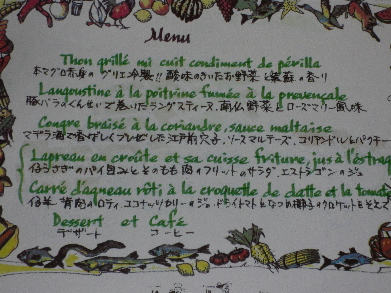 Menu
Thon grillé mi cuit condiment de périlla
本マグロ赤身のグリエ冷製!! 酸味のきいたお野菜と紫蘇の香り
Langoustine à la poitrine fumée à la provençale
豚バラのくんせいで巻いたラングスティーヌ、南仏野菜とローズマリー風味
Congre braisé à la coriandre, sauce maltaise
マデラ酒で香ばしくブレゼした江戸前穴子、ソースマルテーズ、コリアンドルとパクチー
Lapreau en croûte et sa cuisse friture, jus à l'éstrag
仔うさぎのパイ包みとそのもも肉のフリットのサラダ、エストラゴンのジュ
Carré d'agneau rôti à la croquette de datte et la tomate
仔羊背肉のロティ、ココナッツカレーのジュ、ドライトマトとなつめ椰子のクロケットをそえて
Dessert et Café
デザート コーヒー